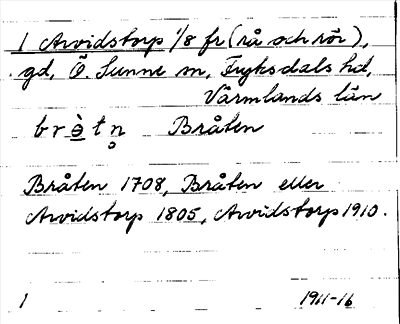 1 Arvidstorp 1/8 fr (rå och rör),
gd, Ö. Sunne sn, Fryksdals hd,
Värmlands län
brè̲tn̥ Bråten
Bråten 1708, Bråten eller
Arvidstorp 1805, Arvidstorp 1910.
1 1911-16